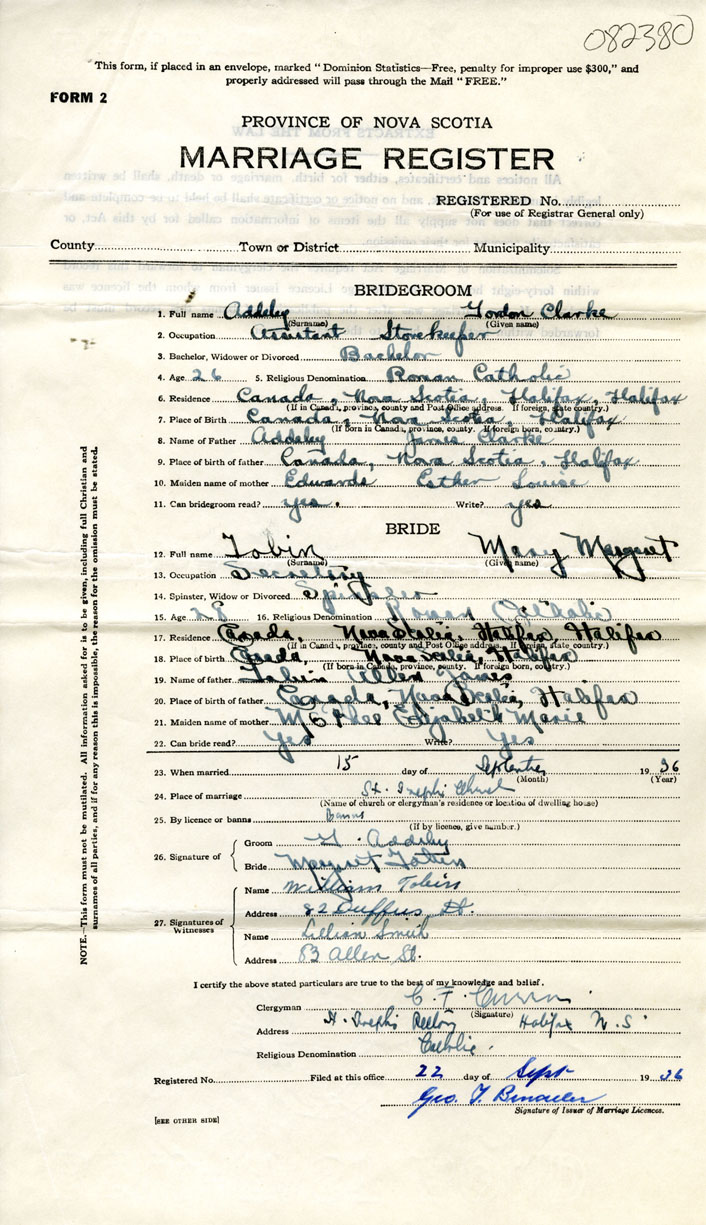 082380
This form, if placed in an envelope, marked "Dominion Statistics—Free, penalty for improper use $300," and
properly addressed will pass through the Mail "FREE."
FORM 2
PROVINCE OF NOVA SCOTIA
MARRIAGE REGISTER
REGISTERED No.
(For use of Registrar General only)
County Town or District Municipality
BRIDEGROOM
1. Full name Addeley Gordon Clarke
(Surname) (Given name)
2. Occupation Assistant Storekeeper
3. Bachelor, Widower or Divorced Bachelor
4. Age 26 5. Religious Denomination Roman Catholic
6. Residence Canada, Nova Scotia, Halifax, Halifax
(If in Canada, province, county and Post Office address. If foreign, state country.)
7. Place of Birth Canada, Nova Scotia, Halifax
(If born in Canada, province, county. If foreign born, country.)
8. Name of Father Addeley James Clarke
9. Place of birth of father Canada, Nova Scotia, Halifax
10. Maiden name of mother Edwards Esther Louise
11. Can bridegroom read? yes. Write? yes
BRIDE
12. Full name Tobin Mary Margaret
(Surname) (Given name)
13. Occupation Secretary
14. Spinster, Widow or Divorced Spinster
15. Age 28 16. Religious Denomination Roman Catholic
17. Residence Canada, Nova Scotia, Halifax, Halifax
(If in Canada, province, county and Post Office address. If foreign, state country.)
18. Place of birth Canada, Nova Scotia, Halifax
(If born in Canada, province, county. If foreign born, country.)
19. Name of father Tobin Allen James
20. Place of birth of father Canada, Nova Scotia, Halifax
21. Maiden name of mother McPhee Elizabeth Marie
22. Can bride read? Yes Write? Yes
23. When married 15 day of September 1936
(Month) (Year)
24. Place of marriage St. Joseph's Church
(Name of church or clergyman's residence or location of dwelling house)
25. By licence or banns Banns
(If by licence, give number.)
26. Signature of
Groom G. Addeley
Bride Margaret Tobin
27. Signatures of Witnesses
Name William Tobin
Address 82 Duffus St.
Name Lillian Smith
Address Allen St.
I certify the above stated particulars are true to the best of my knowledge and belief.
Clergyman C. F. Curran
(Signature)
Address St. Joseph's Halifax N.S.
Religious Denomination Catholic.
Registered No. Filed at this office 22 day of Sept 1936
Geo. T.
Signature of Issuer of Marriage Licences.
[SEE OTHER SIDE]
NOTE.—This form must not be mutilated. All information asked for is to be given, including full Christian and
surnames of all parties, and if for any reason this is impossible, the reason for the omission must be stated.